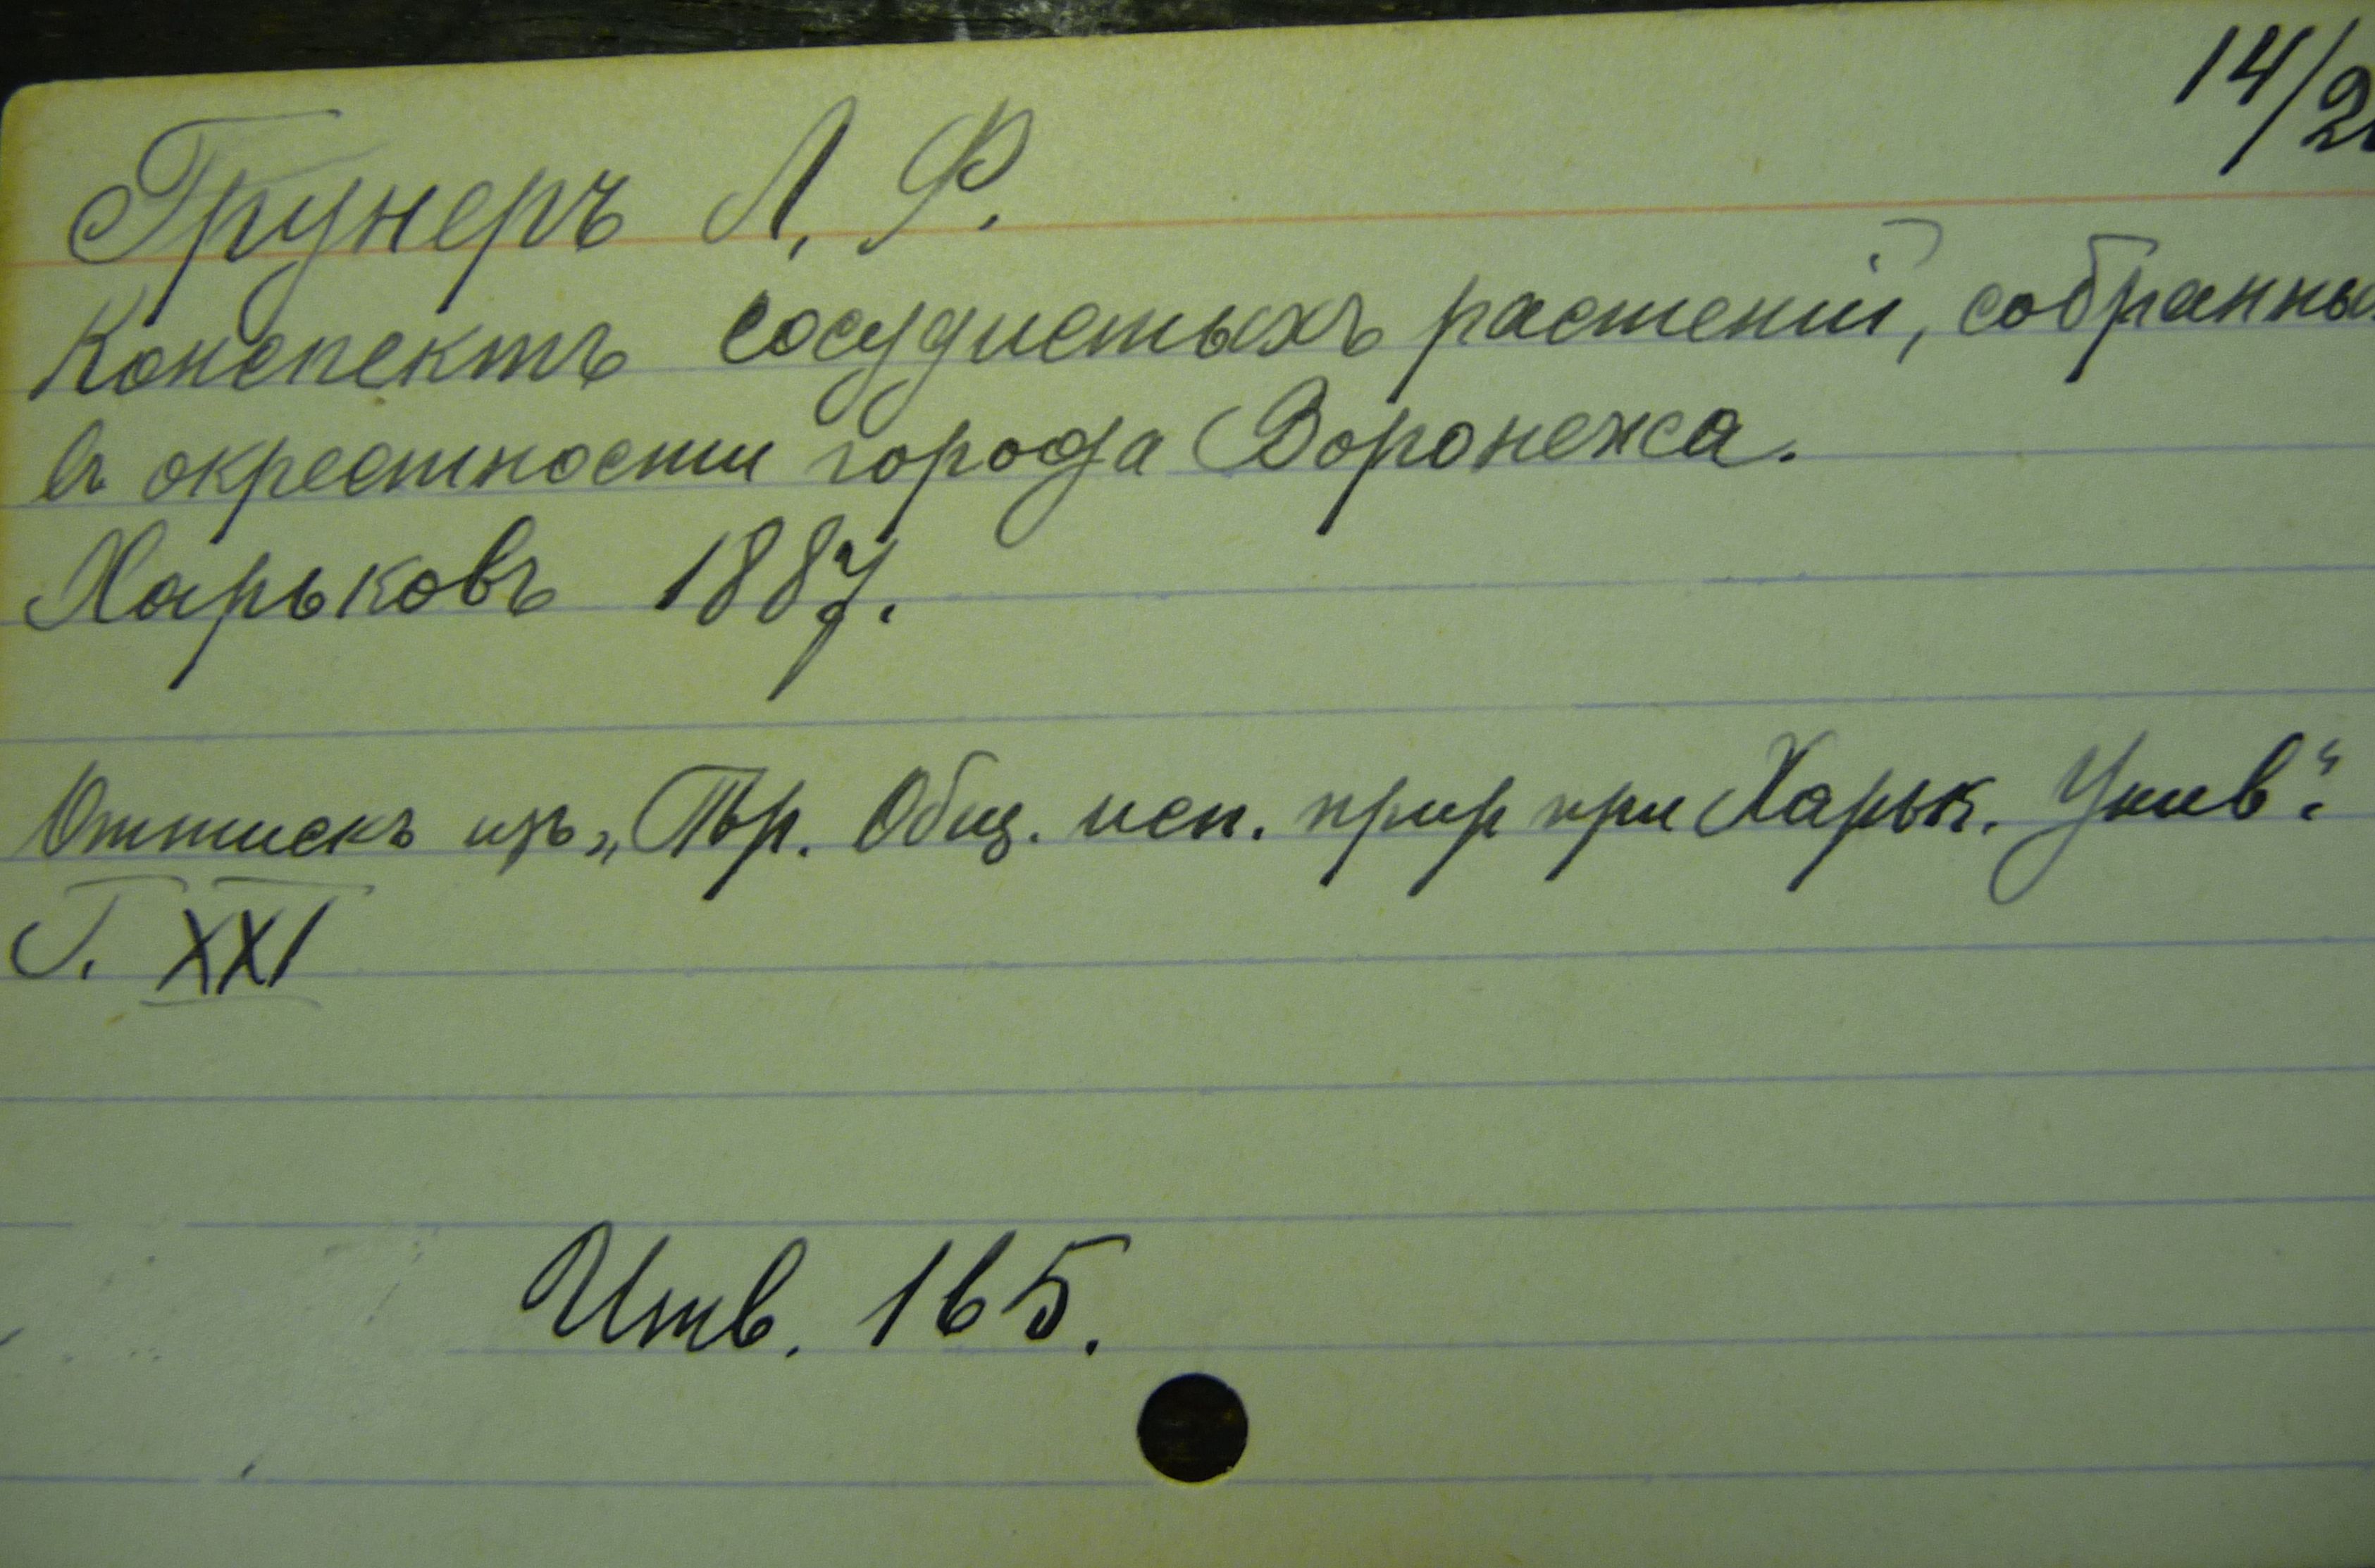 14/2
Грунеръ Л. Ф.
Конспектъ сосудистыхъ растенiй, собранны
въ окрестности города Воронежа.
Харьковъ 1887.
Оттискъ изъ „Тр. Общ. исп. прир при Харьк. Унив“.
Т. XXI
Инв. 165.